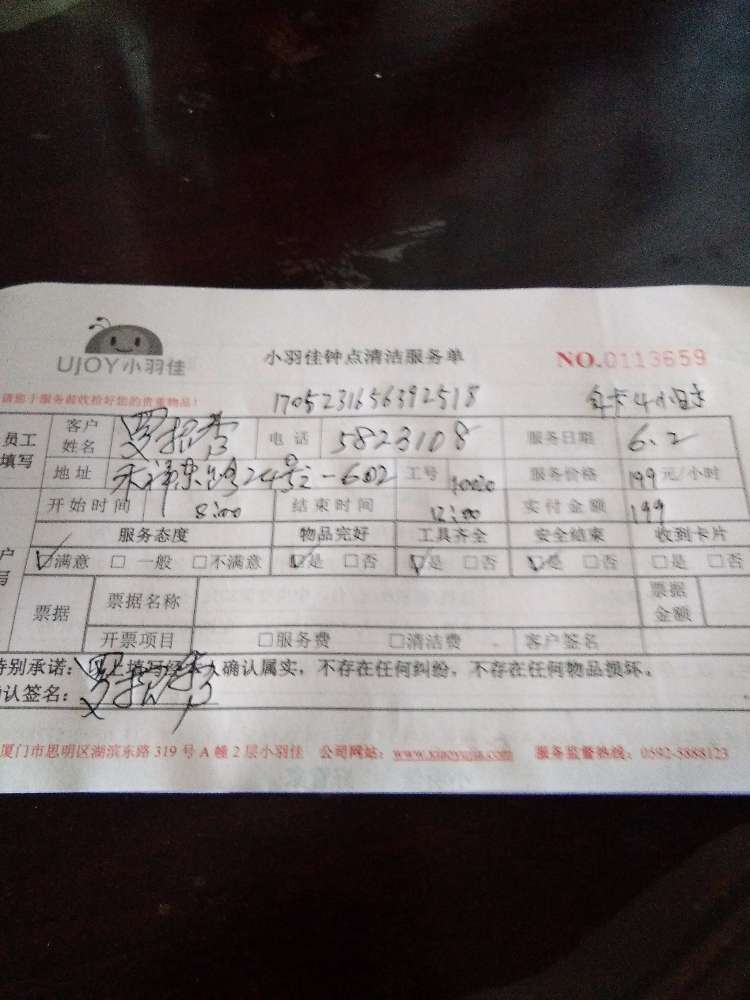 UJOY小羽佳 小羽佳钟点清洁服务单 NO.0113659
请您于服务前收拾好您的贵重物品! 1705231656392518 年卡4小时
员工填写 客户姓名 电话 5823108 服务日期 6.2
地址 24号-602 工号 10020 服务价格 199元/小时
开始时间 8:00 结束时间 12:00 实付金额 199
服务态度 物品完好 工具齐全 安全结束 收到卡片
☑满意 □一般 □不满意 ☑是 □否 ☑是 □否 ☑是 □否 □是 □否
票据 票据名称 票据金额
开票项目 □服务费 □清洁费 客户签名
特别承诺:以上填写经本人确认属实,不存在任何纠纷,不存在任何物品损坏。
确认签名:
厦门市思明区湖滨东路 319 号 A 幢 2 层小羽佳 公司网站:www.xiaoyujia.com 服务监督热线:0592-5888123